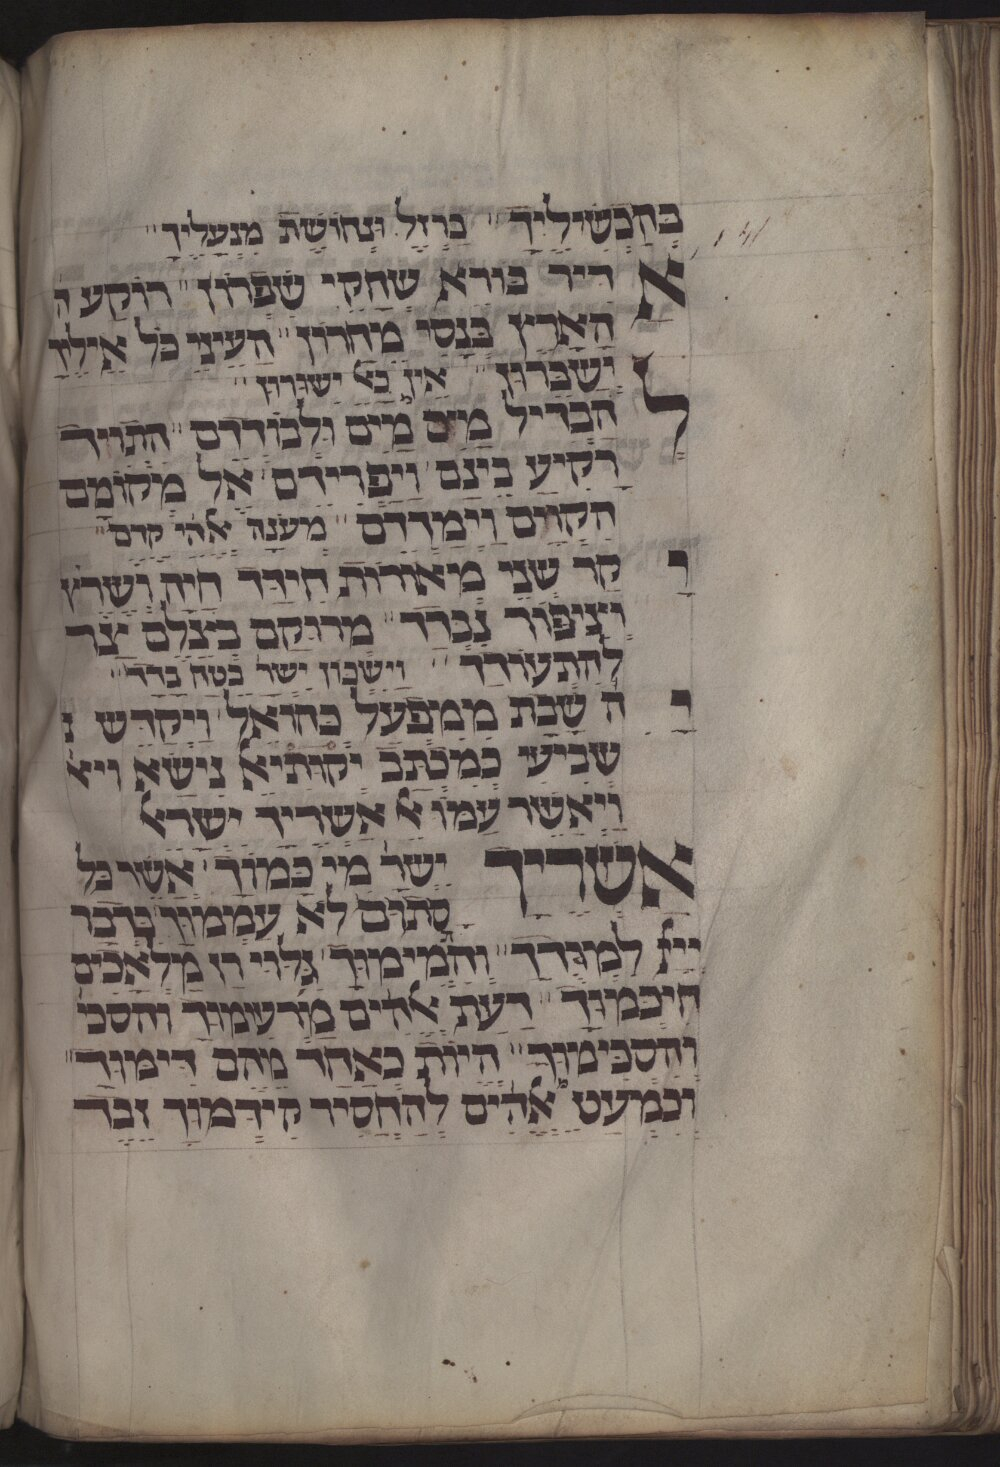 בְהַכְשִׁילֶיךָ״ בַּרְזֶל וּנְחוֹשֶׁת מִנְעָלֶיךָ״
אדיר בורא שחקי שפרון״ רוקע ה
הארץ בנסי מחרון״ העיני כל אילך
ישברון״ אין כאל ישורון״
להבדיל מים מים ולבודדם״ התויך
רקיע בינם ויפרידם אל מקומם
הקוים וימדדם״ מענה אלהי קדם״
יקר שני מאורות חידד חיה ושרץ
וציפור נברד״ מרוקם בצלם יצר
להתעודד״ וישכון ישר׳ בטח בדד״
יה שבת ממפעל בהואל׳ ויקדש נ
שביעי כמכתב יקותיא׳ נישא ויא׳
ויאשר עמו א׳ אשריך ישרא׳
אשריך ישר׳ מי כמוך׳ אשר כל
סתום לא עממוך בדבר
ייי׳ למודך״ והמימוך גלוי רז מלאכים
חיכמוך״ דעת אלהים מדעמוך והסכי
והסכימוך״ היות כאחד מהם דימוך״
וכמעט מאלהים להחסיר קידמוך זבד